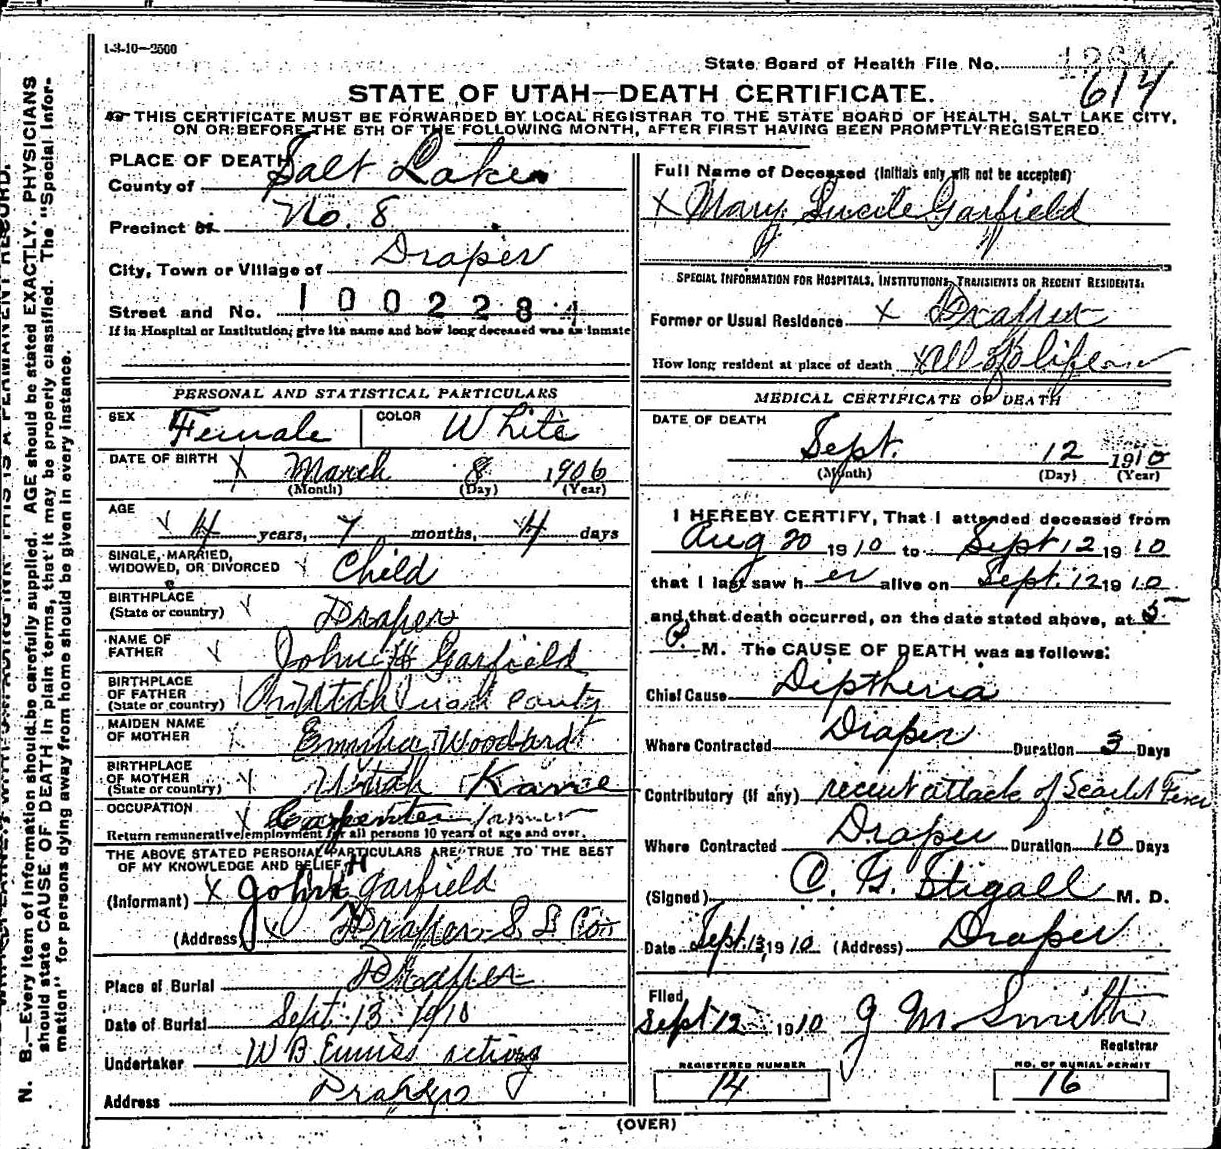 1-3-10—2500
State Board of Health File No.
614
STATE OF UTAH—DEATH CERTIFICATE.
THIS CERTIFICATE MUST BE FORWARDED BY LOCAL REGISTRAR TO THE STATE BOARD OF HEALTH, SALT LAKE CITY,
ON OR BEFORE THE 5TH OF THE FOLLOWING MONTH, AFTER FIRST HAVING BEEN PROMPTLY REGISTERED.
N. B.—Every item of information should be carefully supplied. AGE should be stated EXACTLY. PHYSICIANS
should state CAUSE OF DEATH in plain terms, that it may be properly classified. The "Special Infor-
mation" for persons dying away from home should be given in every instance.
PLACE OF DEATH
County of Salt Lake
Precinct of No. 8
City, Town or Village of Draper
Street and No. 1002284
If in Hospital or Institution, give its name and how long deceased was an inmate
PERSONAL AND STATISTICAL PARTICULARS
SEX Female COLOR White
DATE OF BIRTH X March 8 1906
(Month) (Day) (Year)
AGE
4 years, 7 months, 4 days
SINGLE, MARRIED,
WIDOWED, OR DIVORCED Child
BIRTHPLACE
(State or country) Draper
NAME OF
FATHER John H Garfield
BIRTHPLACE
OF FATHER
(State or country) Utah
MAIDEN NAME
OF MOTHER Woodard
BIRTHPLACE
OF MOTHER
(State or country) Utah
OCCUPATION
Carpenter
Return remunerative employment for all persons 10 years of age and over.
THE ABOVE STATED PERSONAL PARTICULARS ARE TRUE TO THE BEST
OF MY KNOWLEDGE AND BELIEF
(Informant) X John H Garfield
(Address) X Draper S L Co
Place of Burial Draper
Date of Burial Sept. 13 1910
Undertaker W B Enniss acting
Address Draper
Full Name of Deceased (Initials only will not be accepted)
X Mary Lucile Garfield
SPECIAL INFORMATION FOR HOSPITALS, INSTITUTIONS, TRANSIENTS OR RECENT RESIDENTS.
Former or Usual Residence X Draper
How long resident at place of death X All of life
MEDICAL CERTIFICATE OF DEATH
DATE OF DEATH
Sept. 12 1910
(Month) (Day) (Year)
I HEREBY CERTIFY, That I attended deceased from
Aug 20 1910 to Sept 12 1910
that I last saw her alive on Sept. 12 1910
and that death occurred, on the date stated above, at 5
P. M. The CAUSE OF DEATH was as follows:
Chief Cause Diptheria
Where Contracted Draper Duration 3 Days
Contributory (if any) recent attack of Scarlet Fever
Where Contracted Draper Duration 10 Days
(Signed) C. G. Stigall M. D.
Date Sept. 13, 1910 (Address) Draper
Filed
Sept 12 1910 J M Smith
Registrar
REGISTERED NUMBER
14
NO. OF BURIAL PERMIT
16
(OVER)